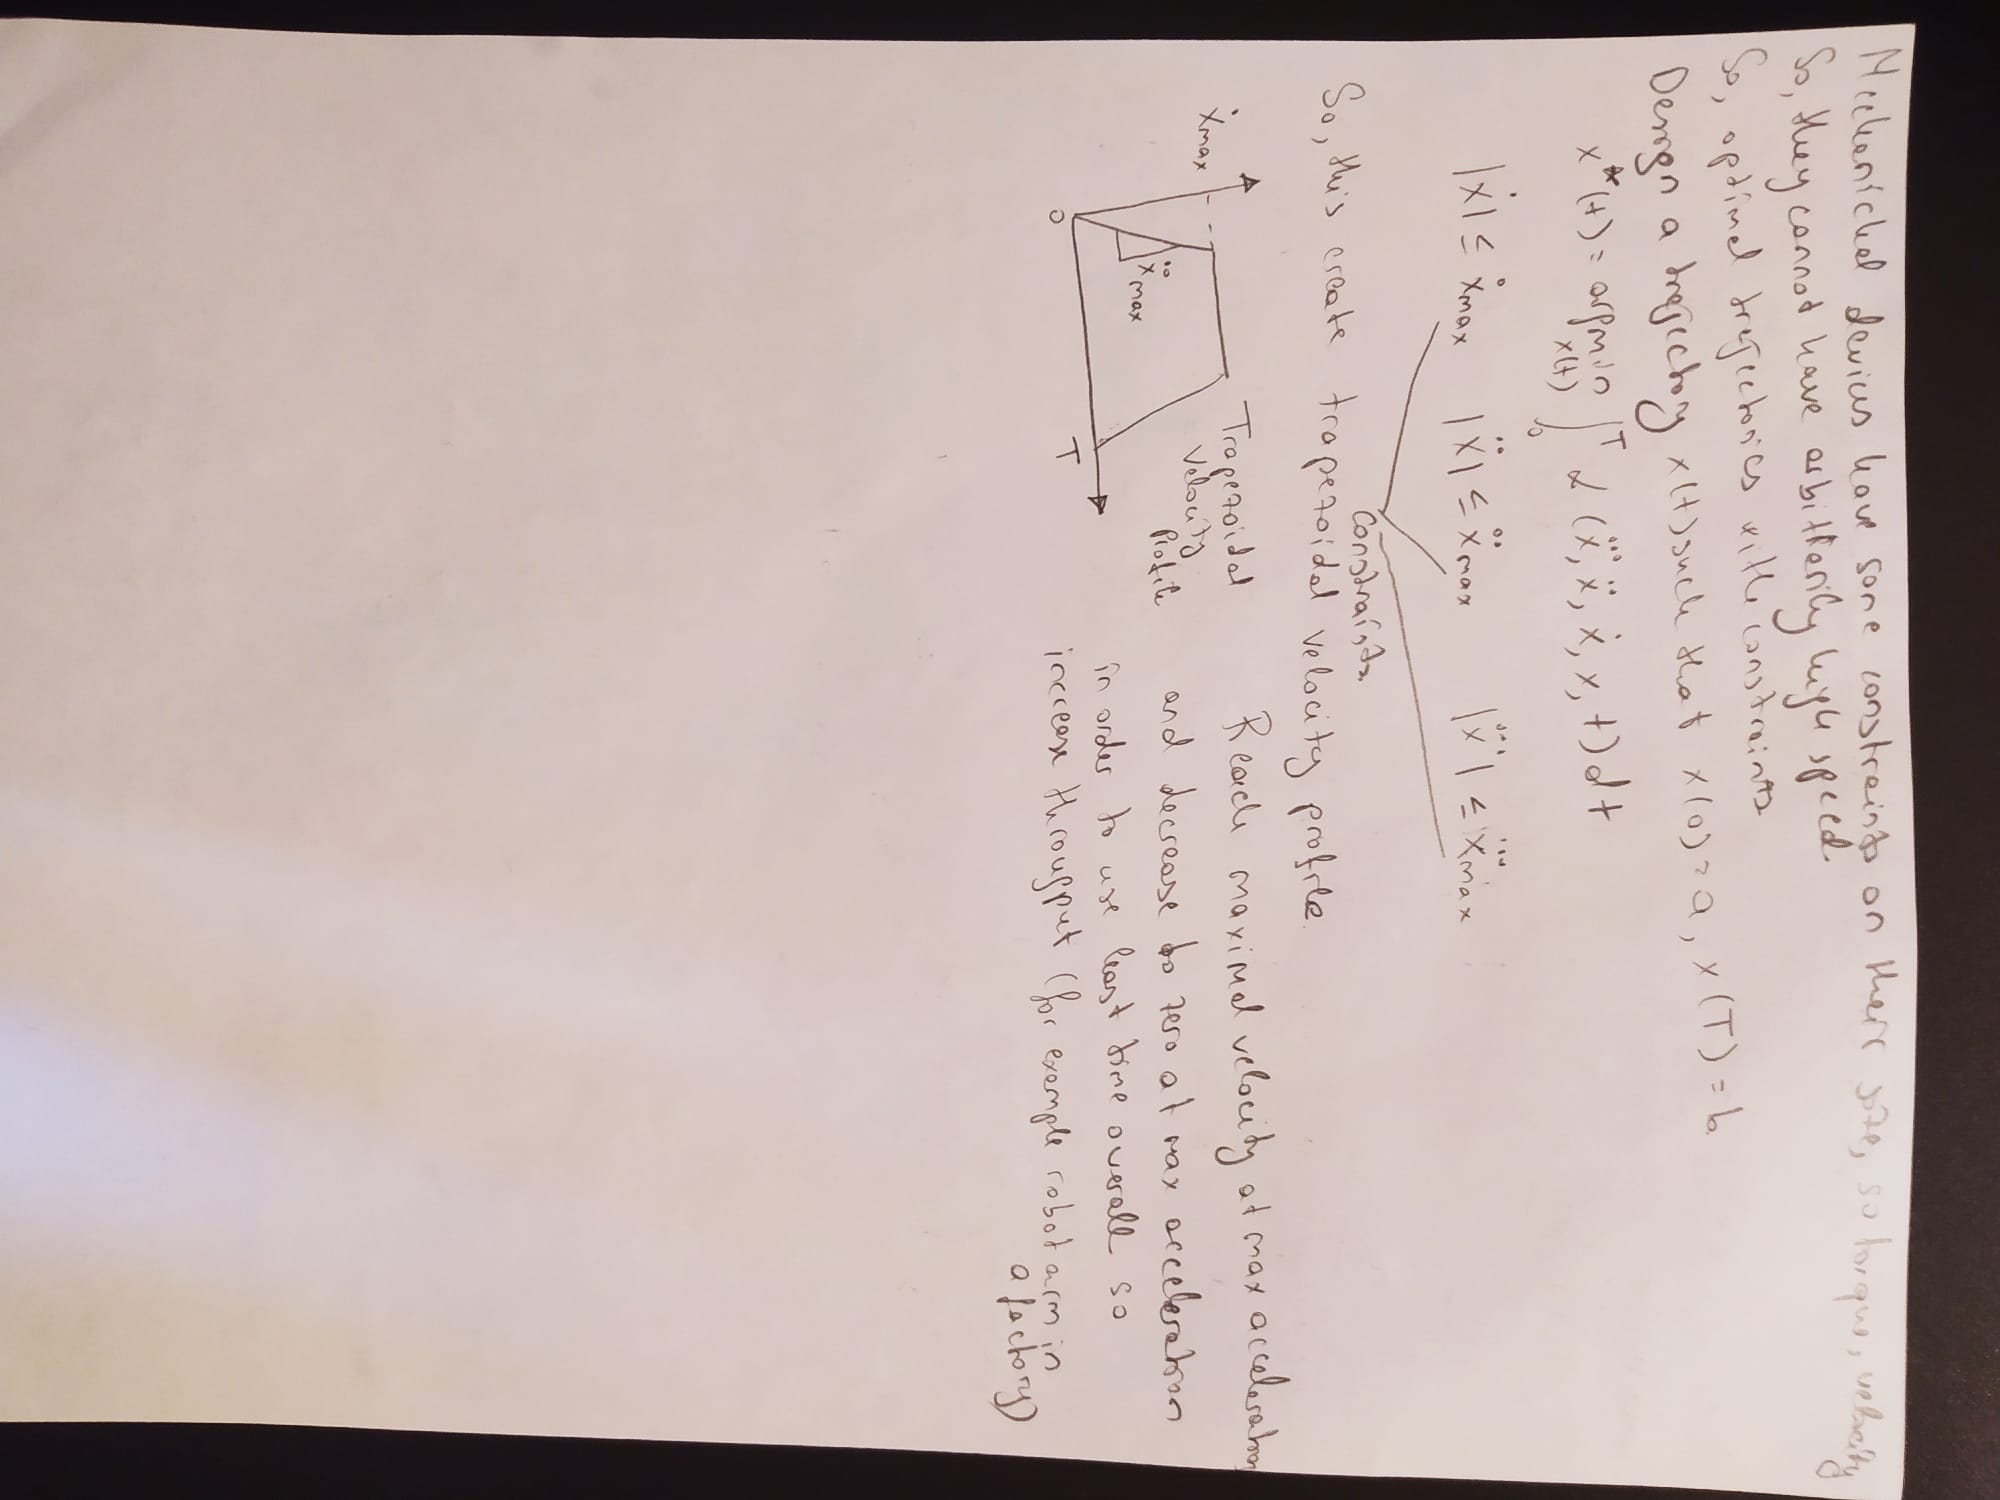 Mechanichal devices have some constraints on their size, so torque, velocity
So, they cannot have arbitterily high speed.
So, optimal trajectories with constraints
Design a trajectory x(t) such that x(0) = a, x(T) = b
x*(t) = argmin x(t) ∫₀ᵀ L(x⃛, ẍ, ẋ, x, t) dt
|ẋ| ≤ ẋmax |ẍ| ≤ ẍmax |x⃛| ≤ x⃛max
Constraints
So, this create trapezoidal velocity profile.
ẋmax
ẍmax
0
T
Trapezoidal
velocity
profile
Reach maximal velocity at max acceleration
and decrease to zero at max acceleration
in order to use least time overall so
increase througput (for example robot arm in
a factory)